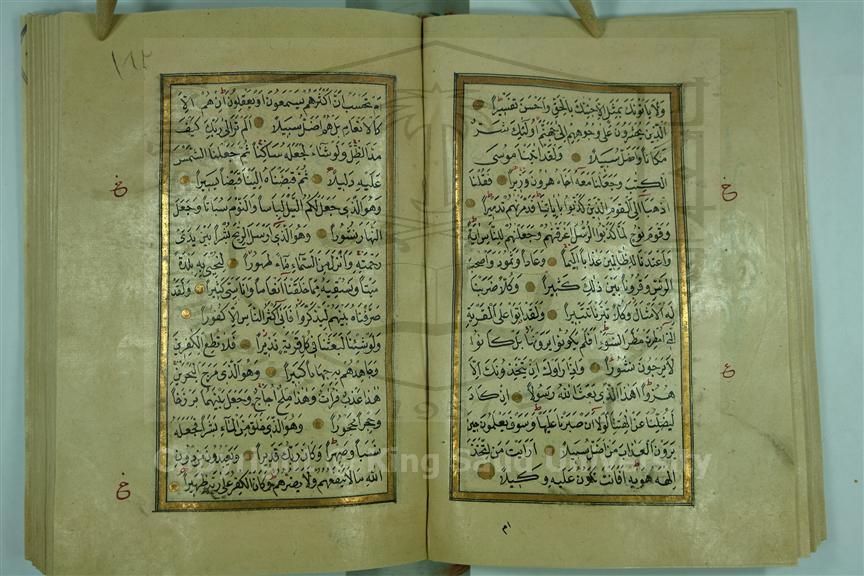 ولا يأتونك بمثل إلا جئناك بالحق وأحسن تفسيرا
الذين يحشرون على وجوههم إلى جهنم أولئك شر
مكانا وأضل سبيلا ولقد آتينا موسى
الكتب وجعلنا معه أخاه هرون وزيرا فقلنا
اذهبا إلى القوم الذين كذبوا بآياتنا فدمرناهم تدميرا
وقوم نوح لما كذبوا الرسل أغرقناهم وجعلناهم للناس آية
وأعتدنا للظالمين عذابا أليما وعادا وثمود وأصحاب
الرس وقرونا بين ذلك كثيرا وكلا ضربنا
له الأمثال وكلا تبرنا تتبيرا ولقد أتوا على القرية
التي أمطرت مطر السوء أفلم يكونوا يرونها بل كانوا
لا يرجون نشورا وإذا رأوك إن يتخذونك إلا
هزوا أهذا الذي بعث الله رسولا إن كاد
ليضلنا عن آلهتنا لولا أن صبرنا عليها وسوف يعلمون حين
يرون العذاب من أضل سبيلا أرأيت من اتخذ
إلهه هويه أفأنت تكون عليه وكيلا
ام
خ
ع
١٨٢
أم تحسب أن أكثرهم يسمعون أو يعقلون إن هم إلا
كالأنعام بل هم أضل سبيلا ألم تر إلى ربك كيف
مد الظل ولو شاء لجعله ساكنا ثم جعلنا الشمس
عليه دليلا ثم قبضناه إلينا قبضا يسيرا
وهو الذي جعل لكم الليل لباسا والنوم سباتا وجعل
النهار نشورا وهو الذي أرسل الريح نشرا بين يدي
رحمته وأنزلنا من السماء ماء طهورا لنحيي به بلدة
ميتا ونسقيه مما خلقنا أنعاما وأناسي كثيرا ولقد
صرفناه بينهم ليذكروا فأبى أكثر الناس إلا كفورا
ولو شئنا لبعثنا في كل قرية نذيرا فلا تطع الكفرين
وجاهدهم به جهادا كبيرا وهو الذي مرج البحرين
هذا عذب فرات وهذا ملح أجاج وجعل بينهما برزخا
وحجرا محجورا وهو الذي خلق من الماء بشرا فجعله
نسبا وصهرا وكان ربك قديرا ويعبدون من دون
الله ما لا ينفعهم ولا يضرهم وكان الكفر على ربه ظهيرا
خ
خ
King Saud University